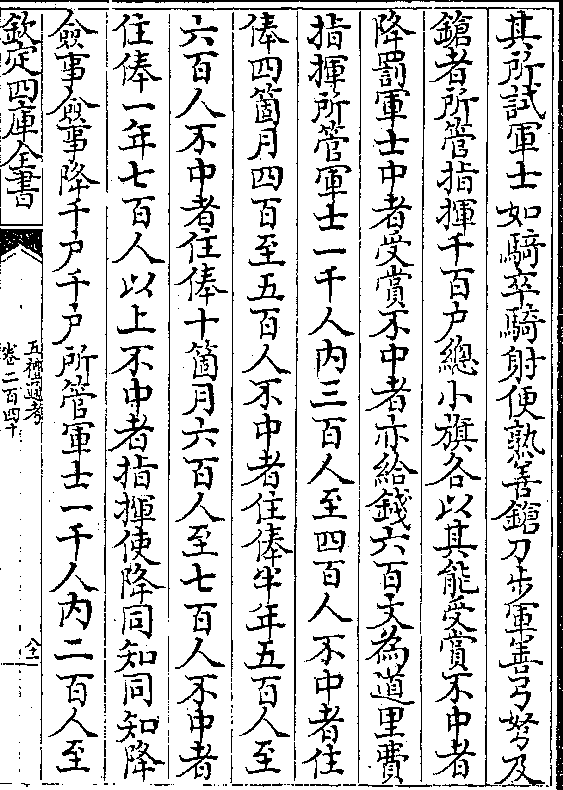 其所試軍士如騎卒騎射便熟善鎗刀步軍善弓弩及
鎗者所管指揮千百戶總小旗各以其能受賞不中者
降罰軍士中者受賞不中者亦給錢六百文為道里費
指揮所管軍士一千人內三百人至四百人不中者住
俸四箇月四百至五百人不中者住俸半年五百人至
六百人不中者住俸十箇月六百人至七百人不中者
住俸一年七百人以上不中者指揮使降同知同知降
僉事僉事降千戶千戶所管軍士一千人內二百人至
欽定四庫全書
五禮通考
卷二百四十